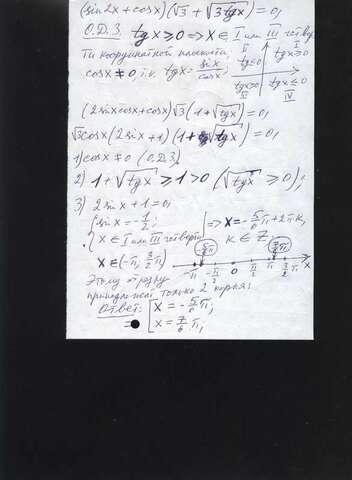 (sin2x + cosx)(√3 + √3tgx) = 0,
О.Д.З. tgx ≥ 0 ⇒ x ∈ I или III четвер
ти координатной плоскости, II tgx≤0 I tgx≥0
cosx ≠ 0, т.к. tgx = sinx/cosx. tgx≥0 III tgx≤0 IV
(2sinxcosx + cosx)√3(1 + √tgx) = 0,
√3cosx(2sinx + 1)(1 + √tgx) = 0,
1) cosx ≠ 0 (О.Д.З.)
2) 1 + √tgx ≥ 1 > 0 (√tgx ≥ 0),
3) 2sinx + 1 = 0,
{ sinx = -1/2, ⇒ x = -5/6π + 2πk,
x ∈ I или III четверти k ∈ Z.
x ∈ (-π, 3/2π) -5π/6 7π/6
-π -π/2 0 π/2 π 3/2π x
Этому отрезку
принадлежат только 2 корня:
Ответ: [ x = -5/6π,
x = 7/6π,